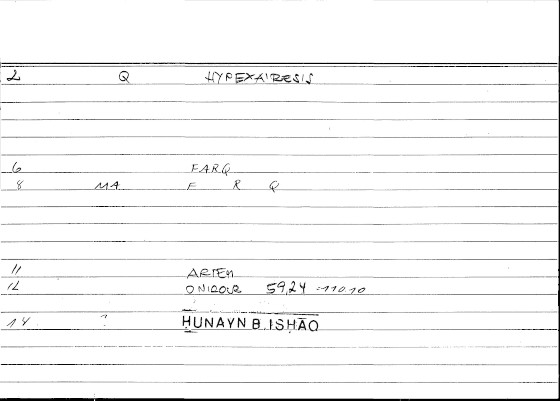 2 Q HYPEXAIRESIS
6 FARQ
8 MA F R Q
11 ARTEM
12 ONIROCR 59,24 = 110,10
14 ? ḤUNAYN B. ISḤĀQ